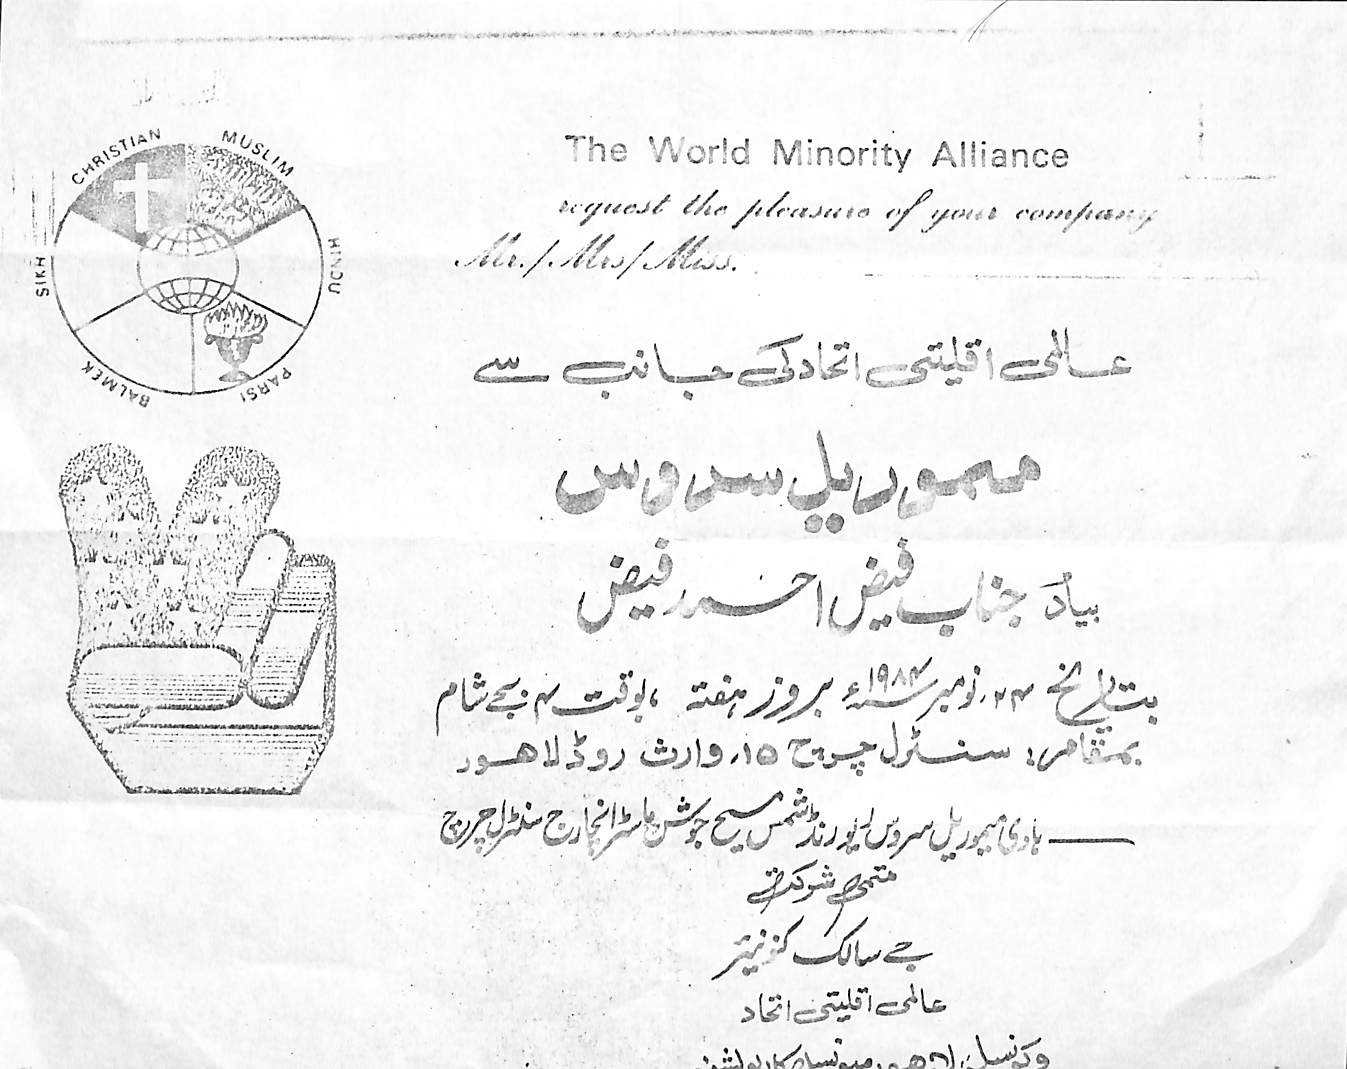 CHRISTIAN
MUSLIM
HINDU
PARSI
BALMEK
SIKH
The World Minority Alliance
request the pleasure of your company
Mr./Mrs/Miss.
عالمی اقلیتی اتحاد کی جانب سے
میموریل سروس
بیاد جناب فیض احمد فیض
بتاریخ ۲۴ نومبر سنہ ۱۹۸۴ء بروز ہفتہ ، بوقت ۴ بجے شام
بمقام: سنٹرل چرچ ۱۵، وارث روڈ لاہور
ہادی میموریل سروس ریورنڈ شمس مسیح جوشن ماسٹر انچارج سنٹرل چرچ
متمنی شرکت
جے سالک کنونیئر
عالمی اقلیتی اتحاد
و کونسلر لاہور میونسپل کارپوریشن